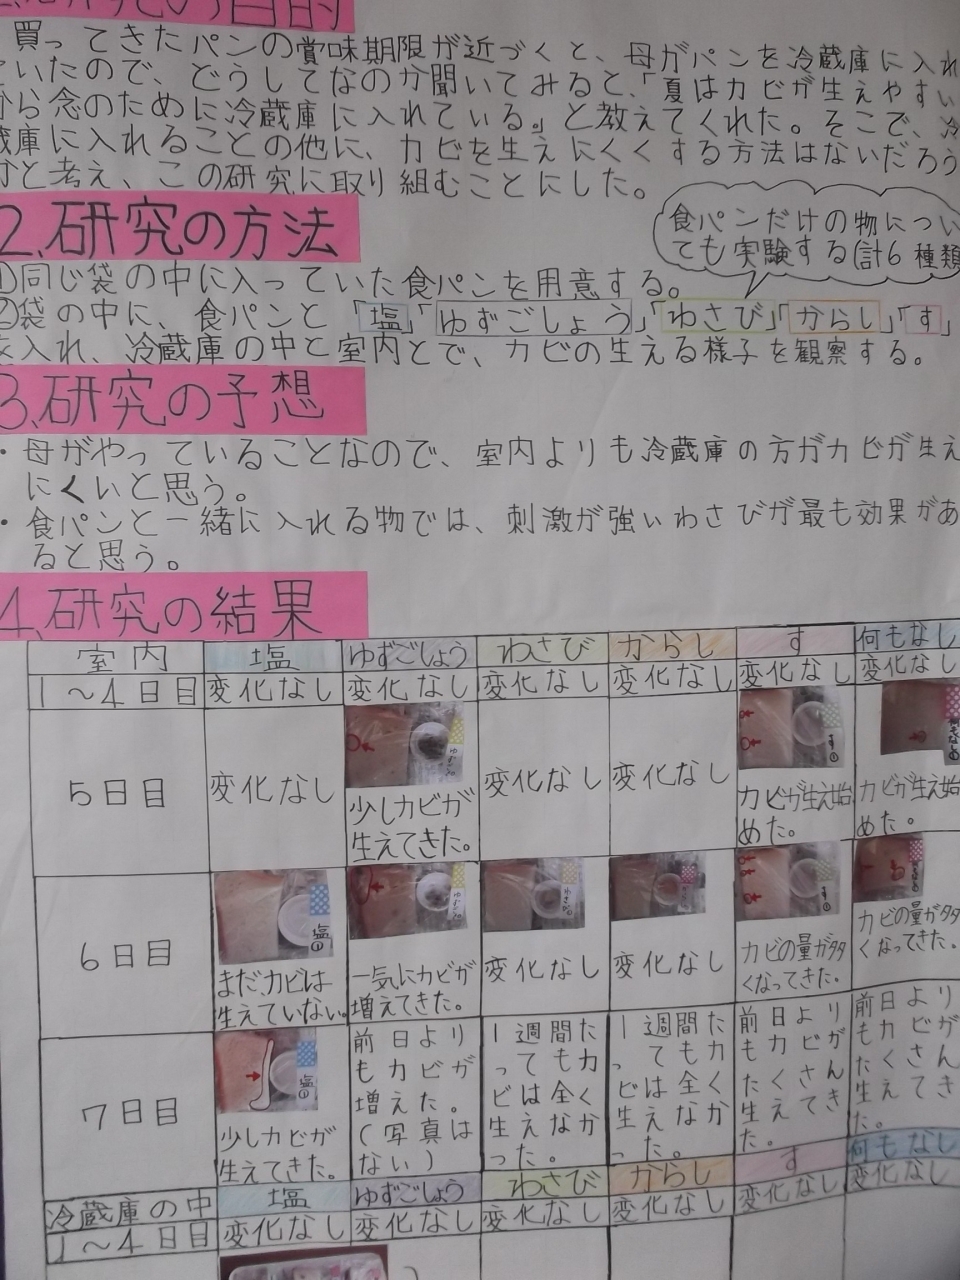 買ってきたパンの賞味期限が近づくと、母がパンを冷蔵庫に入れ
ていたので、どうしてなのか聞いてみると、「夏はカビが生えやすい
から念のために冷蔵庫に入れている。」と教えてくれた。そこで、冷
蔵庫に入れることの他に、カビを生えにくくする方法はないだろう
かと考え、この研究に取り組むことにした。
2.研究の方法
食パンだけの物につい
ても実験する(計6種類
①同じ袋の中に入っていた食パンを用意する。
②袋の中に、食パンと「塩」「ゆずごしょう」「わさび」「からし」「す」
を入れ、冷蔵庫の中と室内とで、カビの生える様子を観察する。
3.研究の予想
・母がやっていることなので、室内よりも冷蔵庫の方がカビが生え
にくいと思う。
・食パンと一緒に入れる物では、刺激が強いわさびが最も効果があ
ると思う。
4.研究の結果
室内 塩 ゆずごしょう わさび からし す 何もなし
1～4日目 変化なし 変化なし 変化なし 変化なし 変化なし 変化なし
5日目 変化なし 少しカビが生えてきた。 変化なし 変化なし カビが生え始めた。 カビが生え始めた。
6日目 まだ、カビは生えていない。 一気にカビが増えてきた。 変化なし 変化なし カビの量が多くなってきた。 カビの量が多くなってきた。
7日目 少しカビが生えてきた。 前日よりもカビが増えた。(写真はない) 1週間たってもカビは全く生えなかった。 1週間たってもカビは全く生えなかった。 前日よりもカビがたくさん生えてきた。 前日よりもカビがたくさん生えてきた。
冷蔵庫の中 塩 ゆずごしょう わさび からし す 何もなし
1～4日目 変化なし 変化なし 変化なし 変化なし 変化なし 変化なし